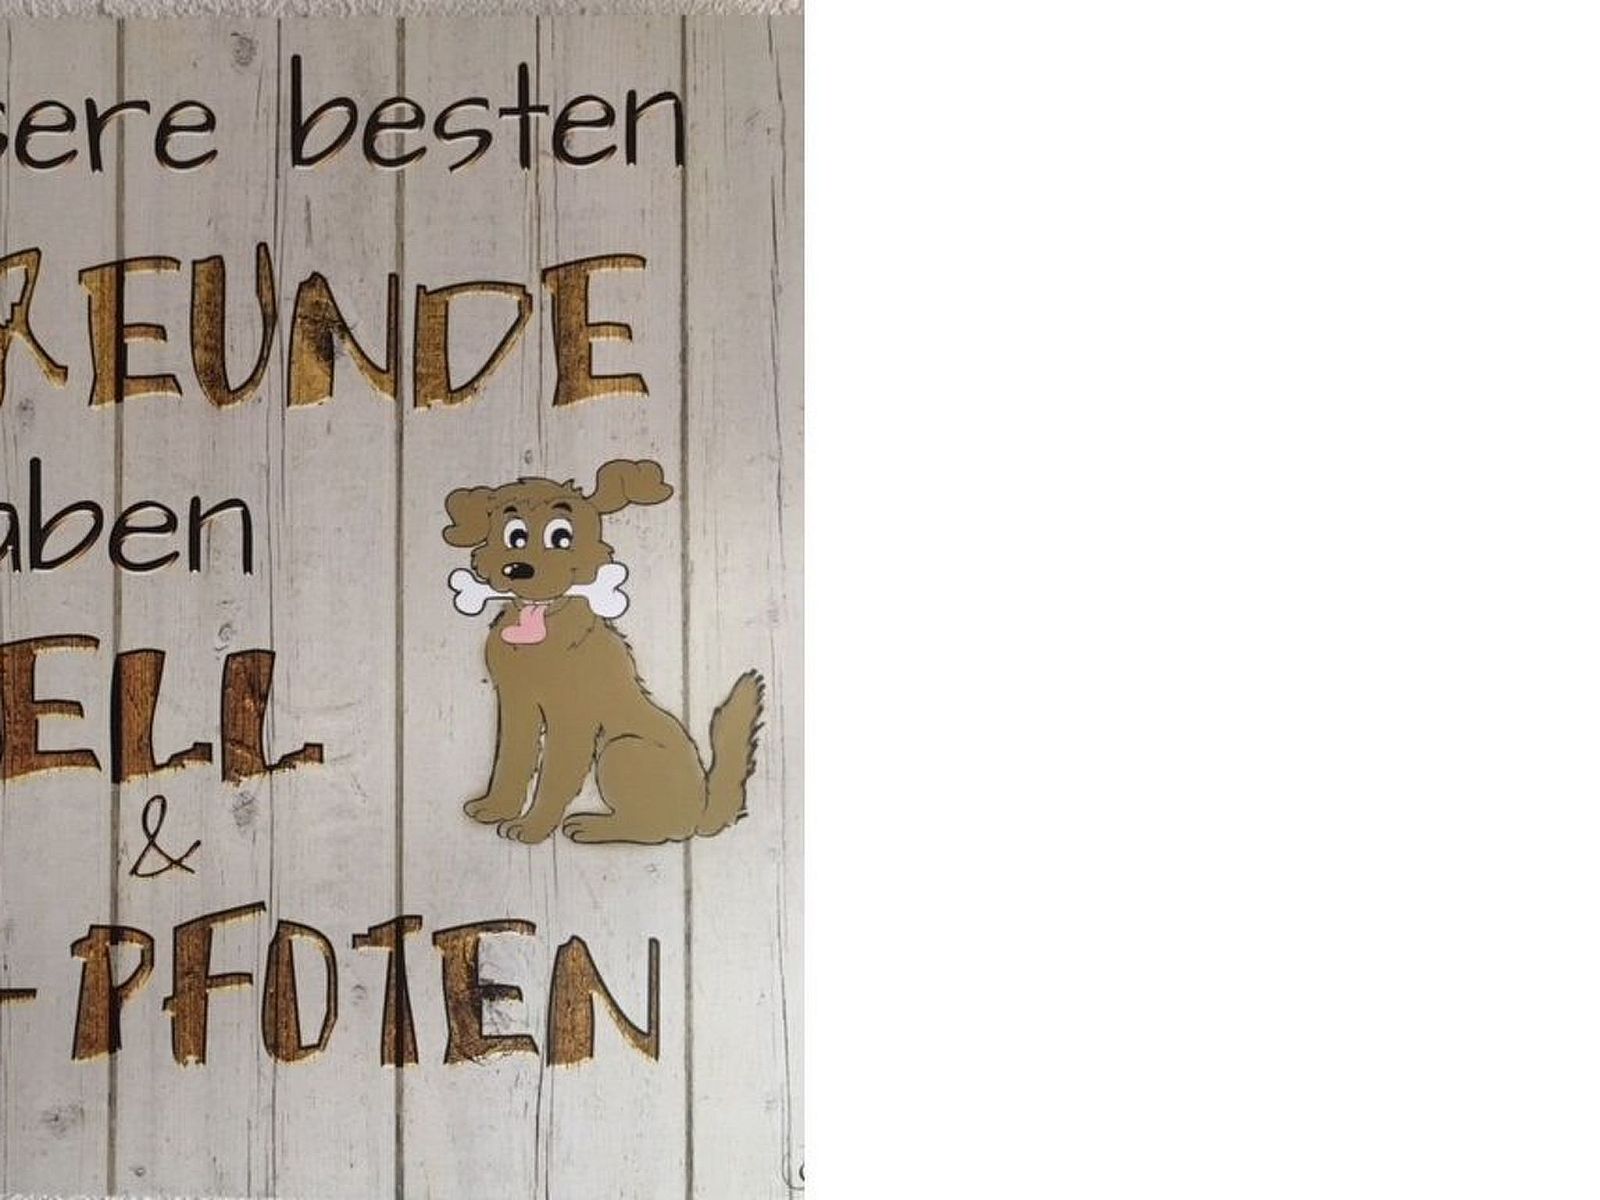 sere besten
REUNDE
aben
ELL
&
-PFOTEN